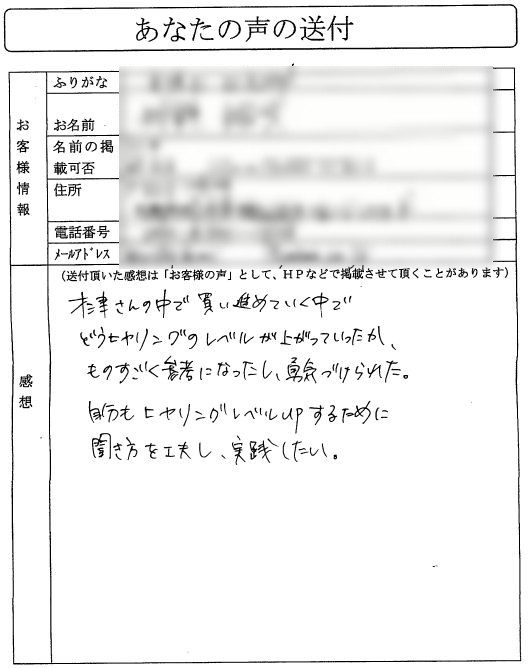 あなたの声の送付
お客様情報
ふりがな
お名前
名前の掲
載可否
住所
電話番号
ﾒｰﾙｱﾄﾞﾚｽ
感想
(送付頂いた感想は「お客様の声」として、HPなどで掲載させて頂くことがあります)
津さんの中で買い進めていく中で
どうヒヤリングのレベルが上がっていったか、
ものすごく参考になったし、勇気づけられた。
自分もヒヤリングレベルupするために
聞き方を工夫し、実践したい。